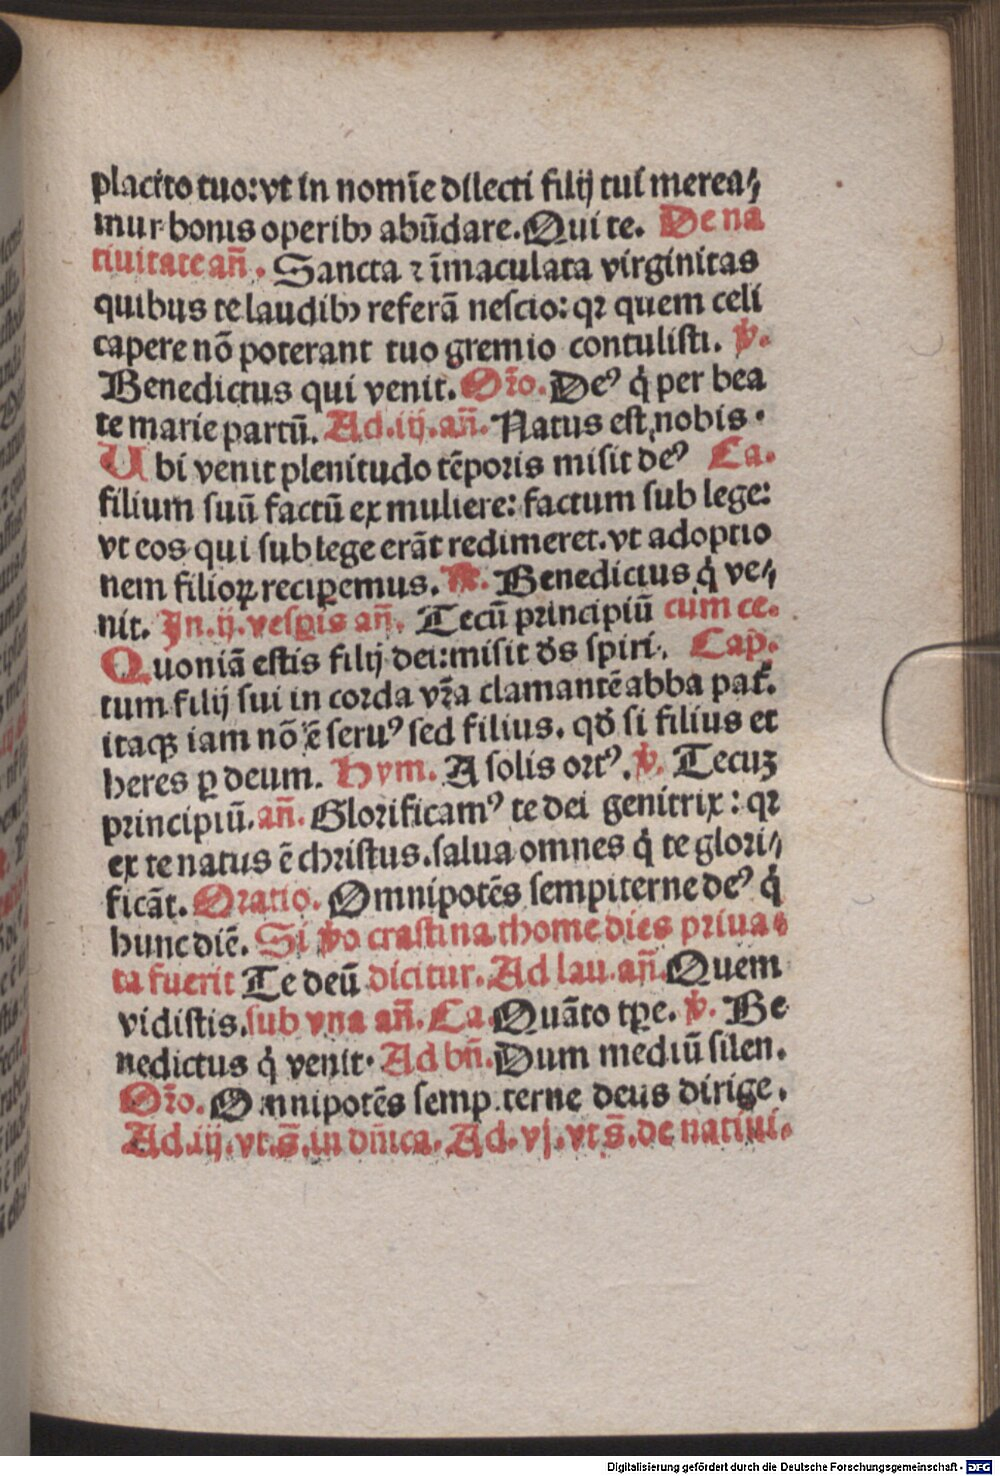 placito tuo: vt in nomīe dilecti filij tui merea⸗
mur bonis operibꝫ abūdare. Qui te. De na
tiuitate an̄. Sancta ⁊ īmaculata virginitas
quibus te laudibꝫ referā nescio: qꝛ quem celi
capere nō poterant tuo gremio contulisti. ℣.
Benedictus qui venit. Or̄o. Deꝰ q̇ per bea
te marie partū. Ad .iij. an̄. Natus est nobis.
Ubi venit plenitudo tēporis misit deꝰ Ca.
filium suū factū ex muliere: factum sub lege:
vt eos qui sub lege erāt redimeret. vt adoptio
nem filioꝝ reciꝑemus. ℟. Benedictus q̇ ve⸗
nit. In .ij. vesꝑis an̄. Tecū principiū cum ce.
Quoniā estis filij dei: misit ds̄ spiri. Cap̄.
tum filij sui in corda vr̄a clamantē abba pat̄.
itaqꝫ iam nō ē seruꝰ sed filius. qd̄ si filius et
heres ꝑ deum. Hym. A solis ortꝰ. ℣. Tecuꝫ
principiū. an̄. Glorificamꝰ te dei genitrix: qꝛ
ex te natus ē christus. salua omnes q̇ te glori⸗
ficāt. Oratio. Omnipotēs sempiterne deꝰ q̇
hunc diē. Si ꝟo crastina thome dies priua⸗
ta fuerit Te deū dicitur. Ad lau. an̄. Quem
vidistis. sub vna an̄. Ca. Quāto tꝑe. ℣. Be
nedictus q̇ venit. Ad bn̄. Dum mediū silen.
Or̄o. Omnipotēs sempiterne deus dirige.
Ad .iij. vt. s̄. in dn̄ica. Ad. vj. vt s̄. de natiui⸗
Digitalisierung gefördert durch die Deutsche Forschungsgemeinschaft - DFG